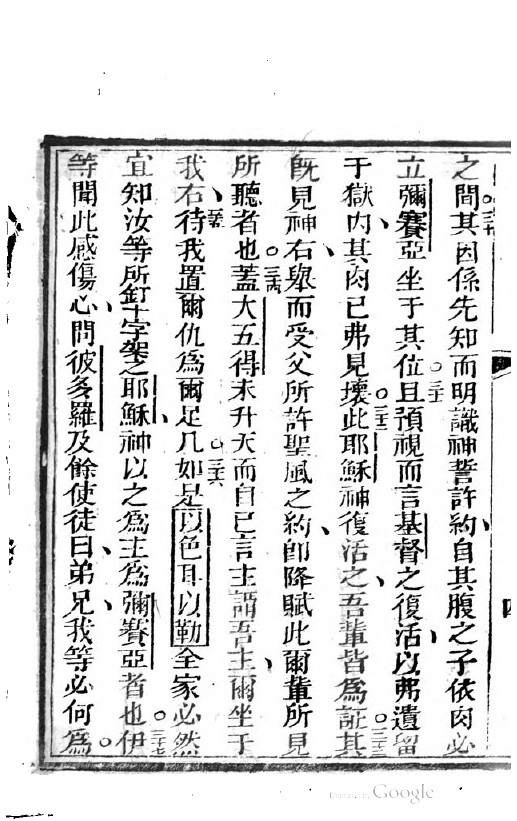 之間三十其因係先知而明識神誓許約自其腹之子依肉必
立彌賽亞坐于其位三十一且預視而言基督之復活以弗遺留
于獄內其肉已弗見壞三十二此耶穌神復活之吾輩皆為証三十三其
既見神右舉而受父所許聖風之約即降賦此爾輩所見
所聽者也三十四蓋大五得未升天而自己言主謂吾主爾坐于
我右三十五待我置爾仇為爾足几如是三十六以色耳以勒全家必然
宜知汝等所釘十字架之耶穌神以之為主為彌賽亞者也三十七伊
等聞此感傷心問彼多羅及餘使徒曰弟兄我等必何為
四
Google